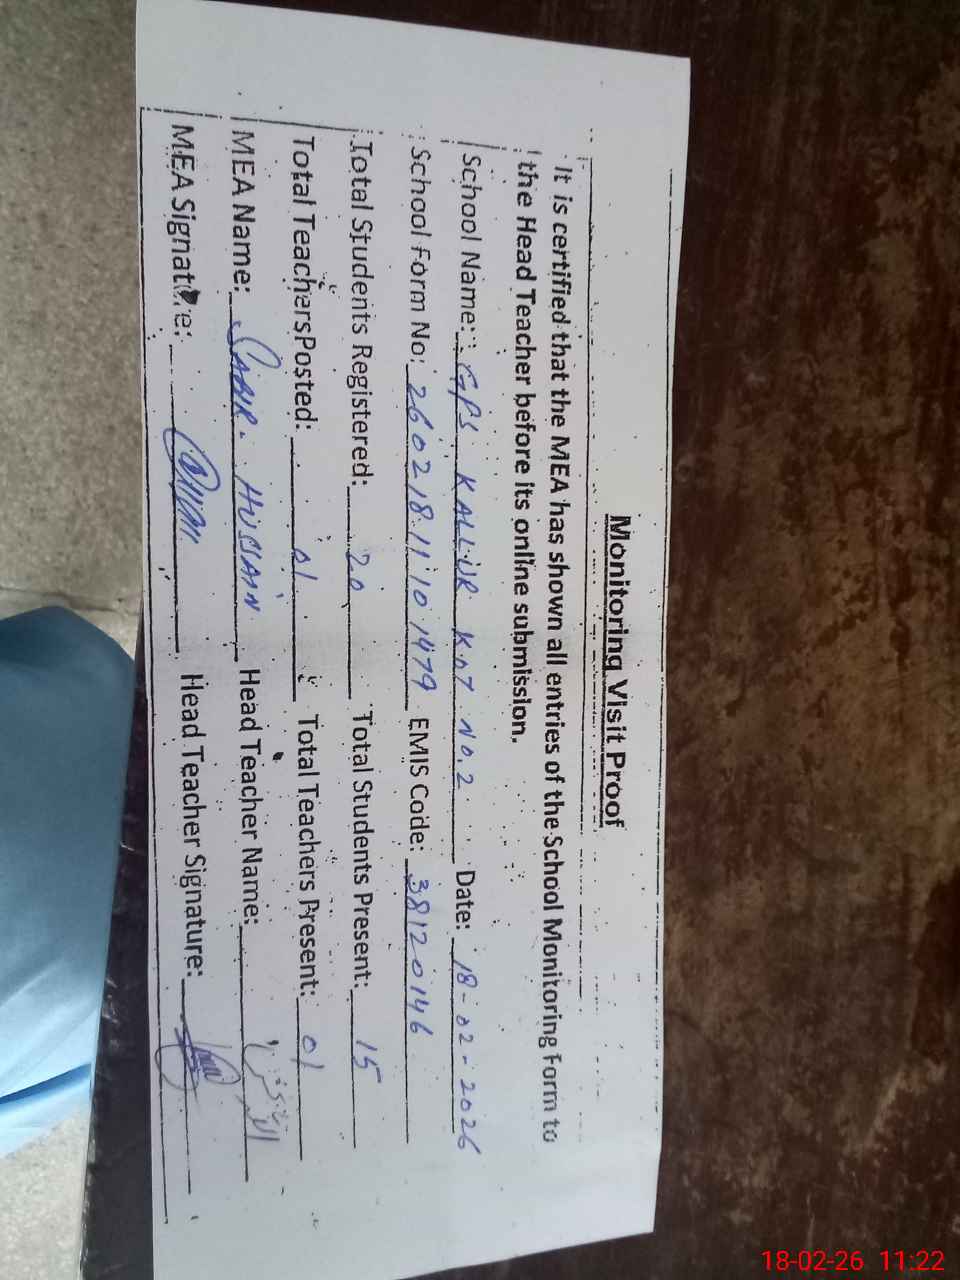 Monitoring Visit Proof
It is certified that the MEA has shown all entries of the School Monitoring Form to
the Head Teacher before its online submission.
School Name: GPS KALLUR KOT NO.2 Date: 18-02-2026
School Form No: 260218111101479 EMIS Code: 38120146
Total Students Registered: 20 Total Students Present: 15
Total TeachersPosted: 01 Total Teachers Present: 01
MEA Name: SABIR. HUSSAIN Head Teacher Name:
MEA Signature: Head Teacher Signature:
18-02-26 11:22